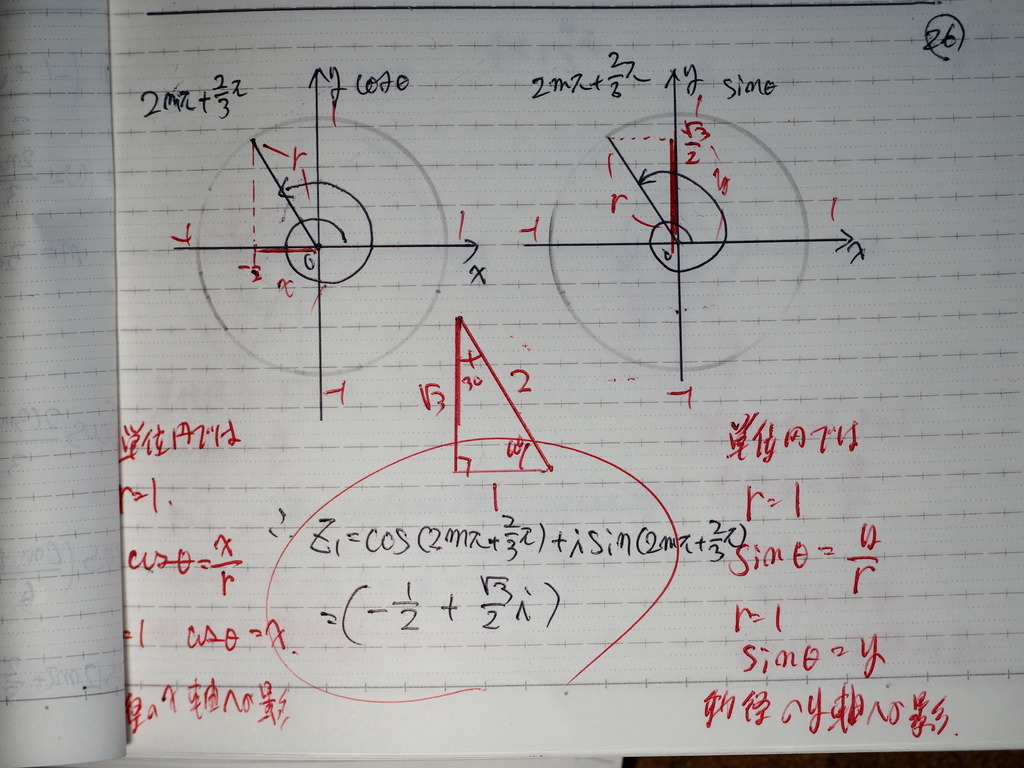 26
2mπ+2/3π
y cosθ
1
r
-1
1
0
x
x
-1
2mπ+2/3π
y sinθ
1
√3/2
1
y
r
-1
1
0
x
-1
√3
30
2
60°
1
単位円では
r=1.
cosθ=x/r
=1 cosθ=x.
のx軸への影
∴ Z₁=cos(2mπ+2/3π)+i sin(2mπ+2/3π)
=(-1/2+√3/2 i)
単位円では
r=1
sinθ=y/r
r=1
sinθ=y
径のy軸への影.